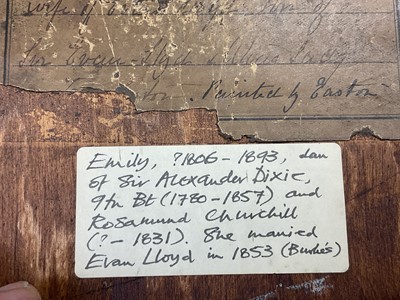 wife of
Sir Evan Lloyd
Painted by Easton
Emily, ?1806 – 1893, dau
of Sir Alexander Dixie,
9th Bt (1780 – 1857) and
Rosamund Churchill
(? – 1831). She married
Evan Lloyd in 1853 (Burke's)